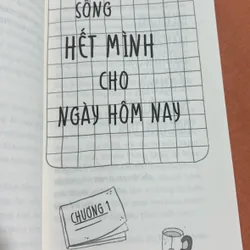 SỐNG
HẾT MÌNH
CHO
NGÀY HÔM NAY
CHƯƠNG 1